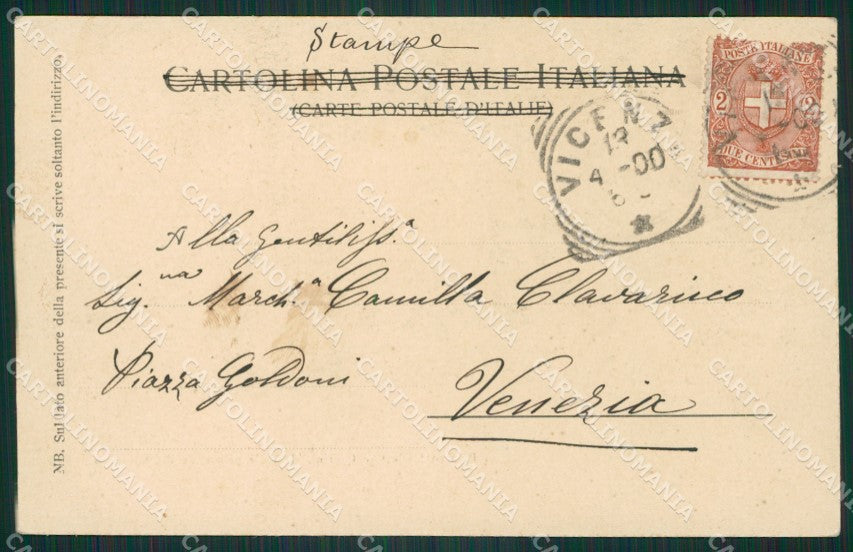 Stampe
CARTOLINA POSTALE ITALIANA
(CARTE POSTALE D'ITALIE)
POSTE ITALIANE
2 2
DUE CENTESIMI
VICENZ
13
4 -00
Alla Gentiliss.a
Sig.na March.a Camilla Clavarino
Piazza Goldoni
Venezia
NB. Sul lato anteriore della presente si scrive soltanto l'indirizzo.
CARTOLINOMANIA